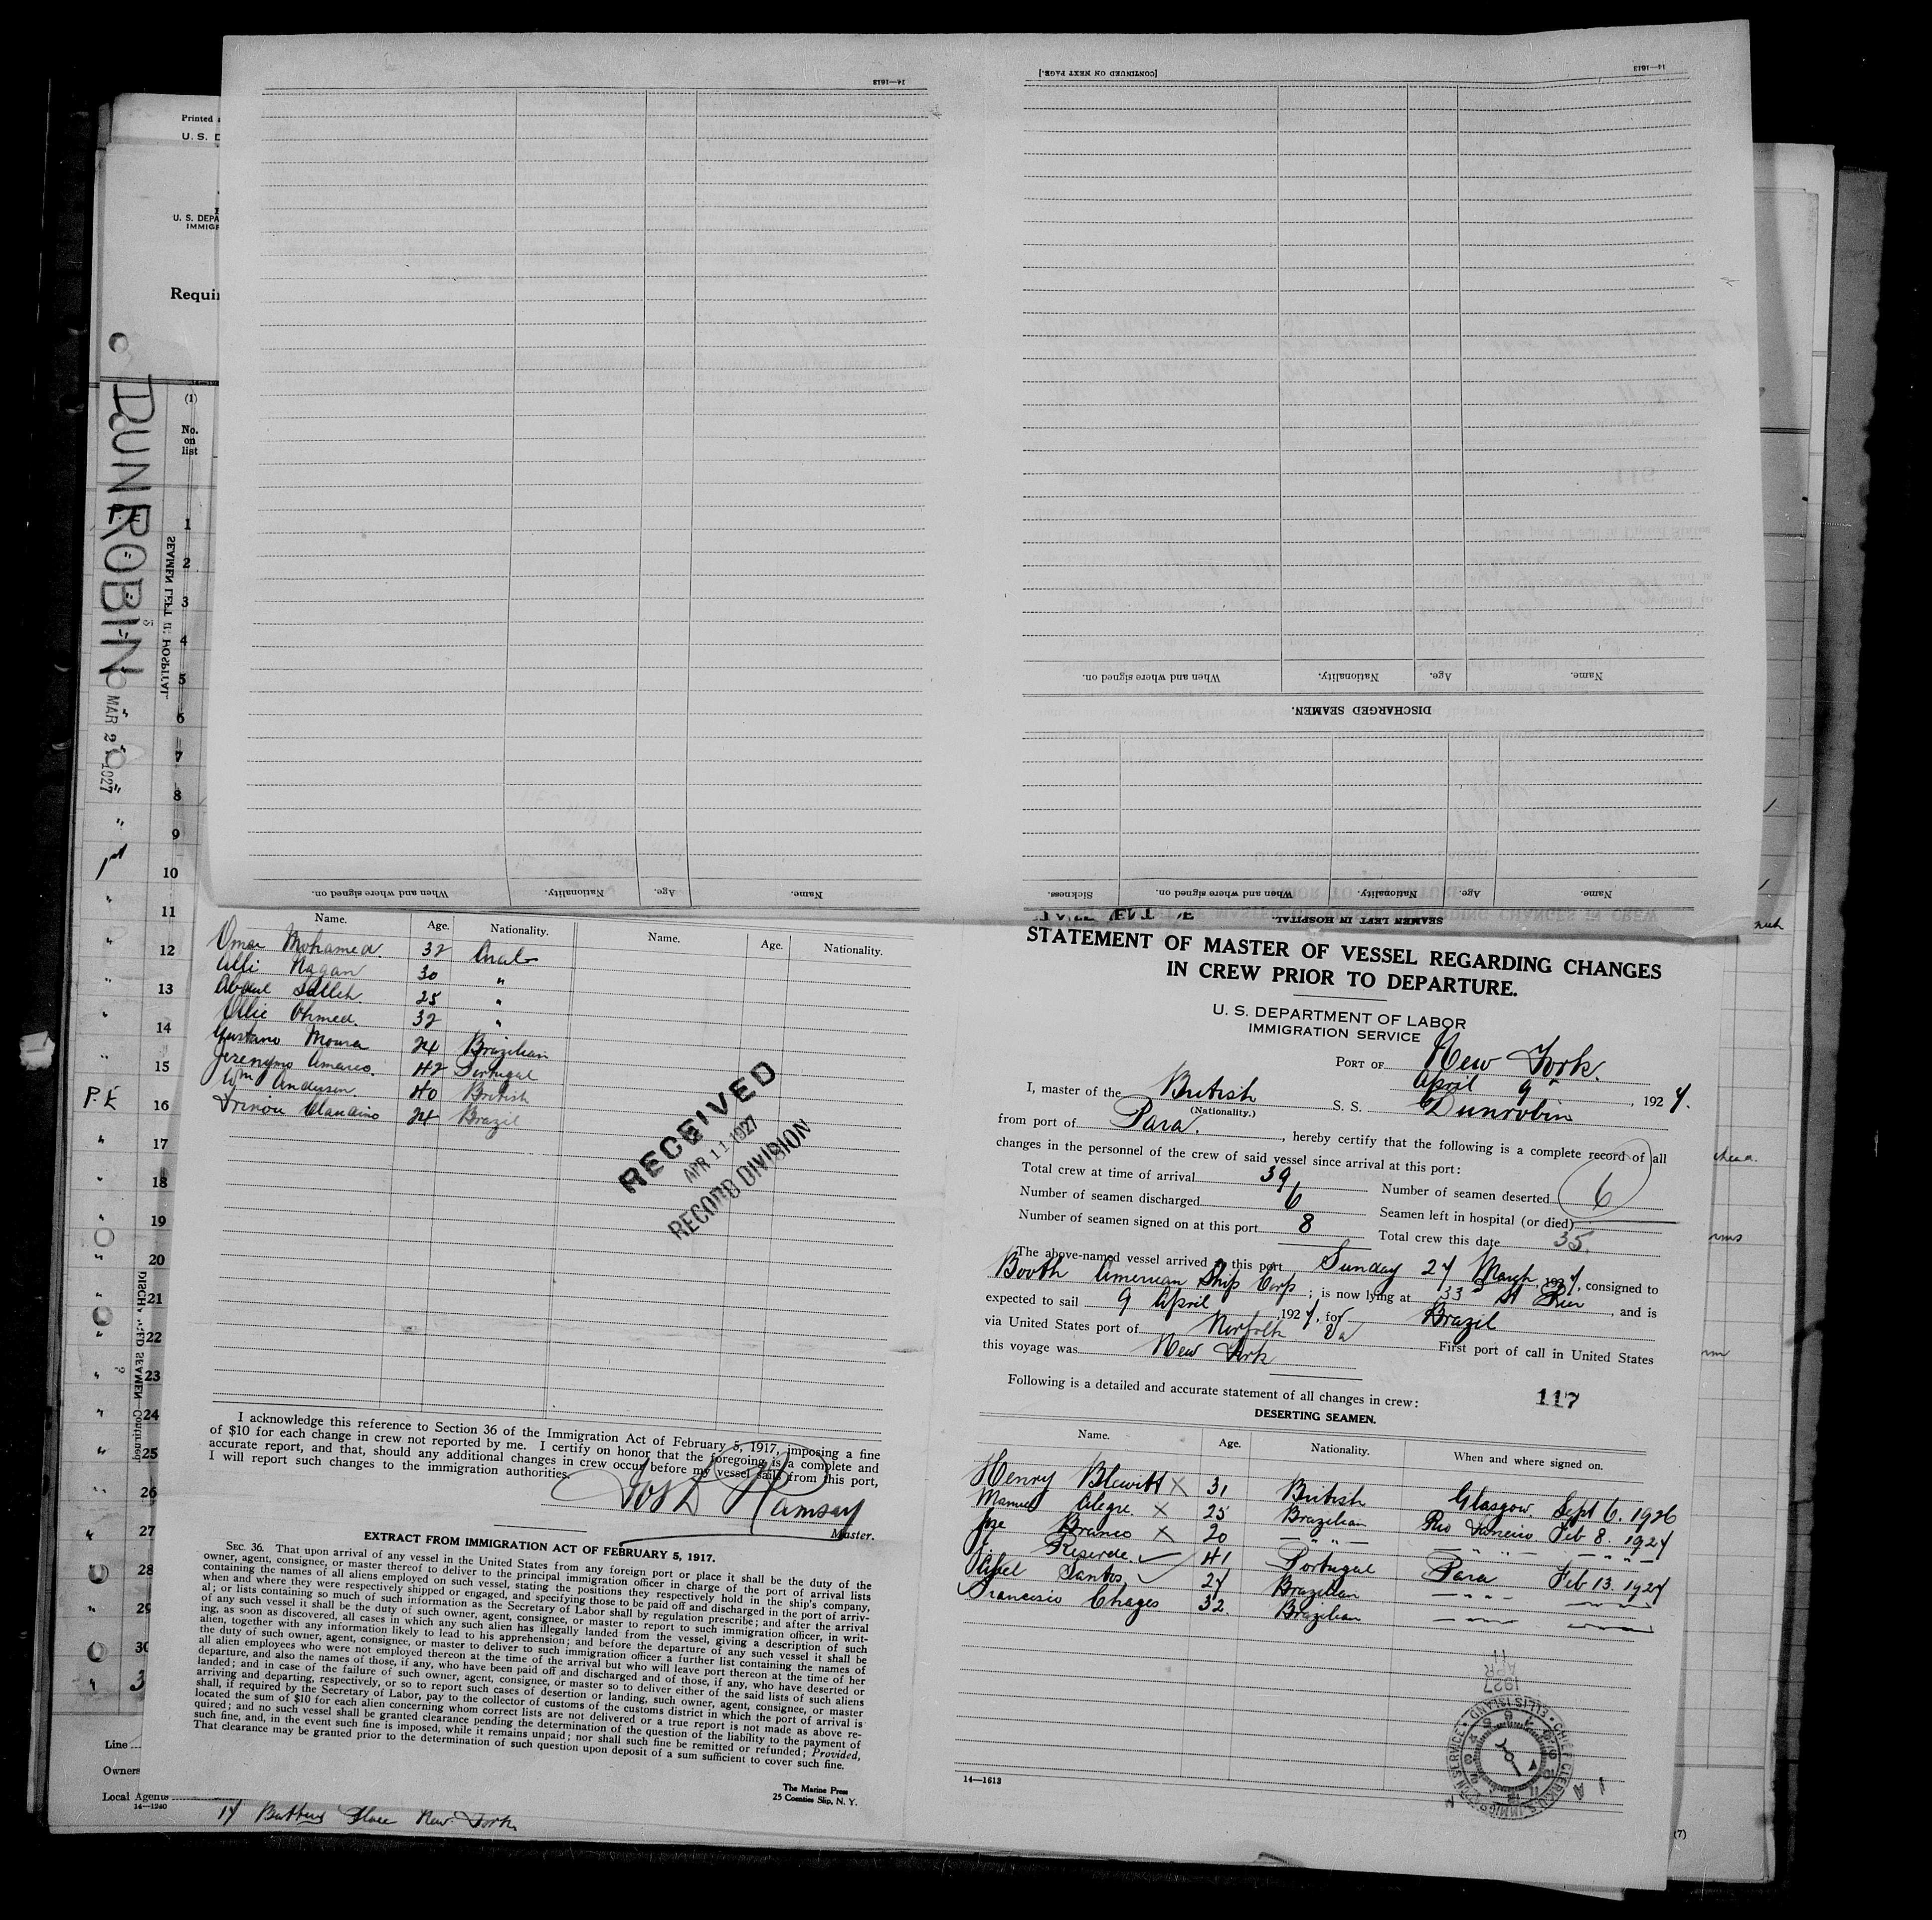 14—1613
[CONTINUED ON NEXT PAGE.]
14—1613
Printed
U. S. D
U. S. DEPA
IMMIGR
Requir
DUNROBIN
MAR 27 1927
(1)
No.
on
list
P.E.
1
2
3
4
5
6
7
8
9
1st
10
11
12
13
14
15
P.E
16
17
18
19
20
21
22
23
24
25
26
27
28
29
30
3
SEAMEN LEFT IN HOSPITAL
DISCHARGED SEAMEN Continued
Name. Age. Nationality. When and where signed on.
DISCHARGED SEAMEN.
Name. Age. Nationality. When and where signed on. Sickness.
Name. Age. Nationality. When and where signed on.
SEAMEN LEFT IN HOSPITAL.
Name. Age. Nationality. Name. Age. Nationality.
Omar Mohamed. 32 Arab
Alli Nagan 30 "
Abdul Salleh. 25 "
Ollie Ahmed. 32 "
Gustavo Moura 24 Brazilian
Jeronymo Amaro. 42 Portugal
Wm Anderson. 40 British
Claudino 24 Brazil
RECEIVED
APR 11 1927
RECORD DIVISION
I acknowledge this reference to Section 36 of the Immigration Act of February 5, 1917, imposing a fine
of $10 for each change in crew not reported by me. I certify on honor that the foregoing is a complete and
accurate report, and that, should any additional changes in crew occur before my vessel sails from this port,
I will report such changes to the immigration authorities.
Ramsay
Master.
EXTRACT FROM IMMIGRATION ACT OF FEBRUARY 5, 1917.
SEC. 36. That upon arrival of any vessel in the United States from any foreign port or place it shall be the duty of the
owner, agent, consignee, or master thereof to deliver to the principal immigration officer in charge of the port of arrival lists
containing the names of all aliens employed on such vessel, stating the positions they respectively hold in the ship's company,
when and where they were respectively shipped or engaged, and specifying those to be paid off and discharged in the port of arriv-
al; or lists containing so much of such information as the Secretary of Labor shall by regulation prescribe; and after the arrival
of any such vessel it shall be the duty of such owner, agent, consignee, or master to report to such immigration officer, in writ-
ing, as soon as discovered, all cases in which any such alien has illegally landed from the vessel, giving a description of such
alien, together with any information likely to lead to his apprehension; and before the departure of any such vessel it shall be
the duty of such owner, agent, consignee, or master to deliver to such immigration officer a further list containing the names of
all alien employees who were not employed thereon at the time of the arrival but who will leave port thereon at the time of her
departure, and also the names of those, if any, who have been paid off and discharged and of those, if any, who have deserted or
landed; and in case of the failure of such owner, agent, consignee, or master so to deliver either of the said lists of such aliens
arriving and departing, respectively, or so to report such cases of desertion or landing, such owner, agent, consignee, or master
shall, if required by the Secretary of Labor, pay to the collector of customs of the customs district in which the port of arrival is
located the sum of $10 for each alien concerning whom correct lists are not delivered or a true report is not made as above re-
quired; and no such vessel shall be granted clearance pending the determination of the question of the liability to the payment of
such fine, and, in the event such fine is imposed, while it remains unpaid; nor shall such fine be remitted or refunded; Provided,
That clearance may be granted prior to the determination of such question upon deposit of a sum sufficient to cover such fine.
The Marine Press
25 Coenties Slip, N. Y.
Line
Owners
Local Agents
14—1240
17 Battery Place New York
STATEMENT OF MASTER OF VESSEL REGARDING CHANGES
IN CREW PRIOR TO DEPARTURE.
U. S. DEPARTMENT OF LABOR
IMMIGRATION SERVICE
PORT OF New York.
April 9, 1927.
I, master of the British S. S. Dunrobin
(Nationality.)
from port of Para., hereby certify that the following is a complete record of all
changes in the personnel of the crew of said vessel since arrival at this port:
Total crew at time of arrival 39 Number of seamen deserted 6
Number of seamen discharged 6 Seamen left in hospital (or died)
Number of seamen signed on at this port 8 Total crew this date 35.
The above-named vessel arrived at this port Sunday 27 March, 1927, consigned to
Booth American Ship Corp; is now lying at 33rd St Pier, and is
expected to sail 9 April, 1927, for Brazil
via United States port of Norfolk Va First port of call in United States
this voyage was New York
Following is a detailed and accurate statement of all changes in crew: 117
DESERTING SEAMEN.
Name. Age. Nationality. When and where signed on.
Henry Blewitt X 31 British Glasgow. Sept 6. 1926
Manuel Alegre. X 25 Brazilian Rio Janeiro. Feb 8. 1927
Jose Branco X 20 — " " — — " " — — " " —
J. Reserde. ✓ 41 Portugal Para Feb 13. 1927
Santos ✓ 27 Brazilian — " " —
Francisco Chages 32. Brazilian — " —
14—1613
APR 11
1927
CHIEF CLERK U.S. IMMIGRATION SERVICE • ELLIS ISLAND •
(7)